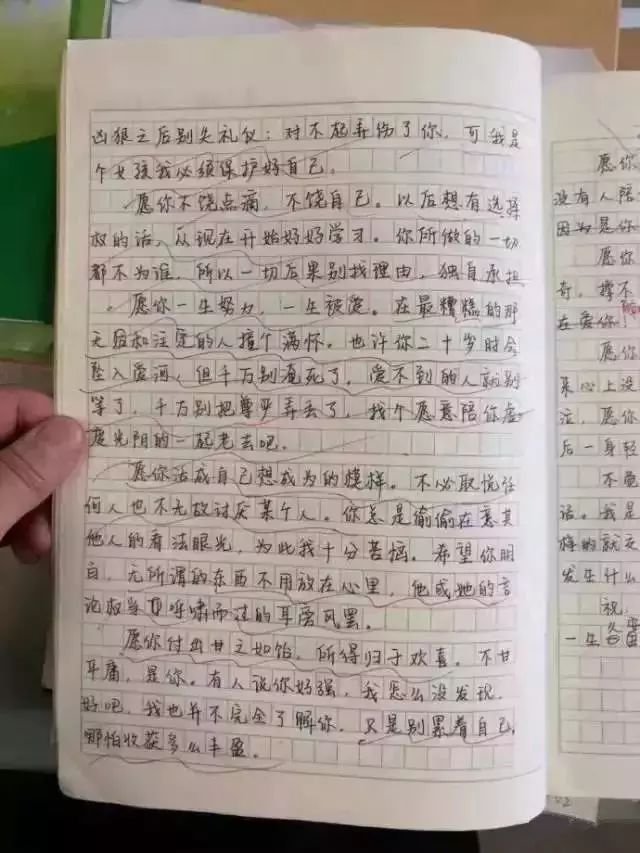 凶狠之后别失礼仪：对不起弄伤了你，可我是
个女孩我必须保护好自己。
愿你不饶点病，不饶自己。以后想有选择
权的话，从现在开始好好学习。你所做的一切
都不为谁，所以一切后果别找理由，独自承担
愿你一生努力，一生被爱。在最糟糕的那
天后和注定的人撞个满怀。也许你二十岁时会
坠入爱河，但千万别淹死了，爱不到的人就别
等了，千万别把尊严弄丢了，找个愿意陪你虚
度光阴的一起老去吧。
愿你活成自己想成为的模样。不必取悦任
何人也不无故讨厌某个人。你总是偷偷在意其
他人的看法眼光，为此我十分苦恼。希望你明
白，无所谓的东西不用放在心里，他或她的言
论权当 呼啸而过的耳旁风罢。
愿你付出甘之如饴，所得归于欢喜。不甘
平庸，是你。有人说你好强，我怎么没发现，
好吧，我也并不完全了解你，只是别累着自己，
哪怕收获多么丰盈。
愿你
没有人陪
因为是你
愿你
奇，撑不
在爱你
愿你
来心上没
泣，愿你
后一身轻
不觉
话。我是
悔的就交
发生什么
祝
一生